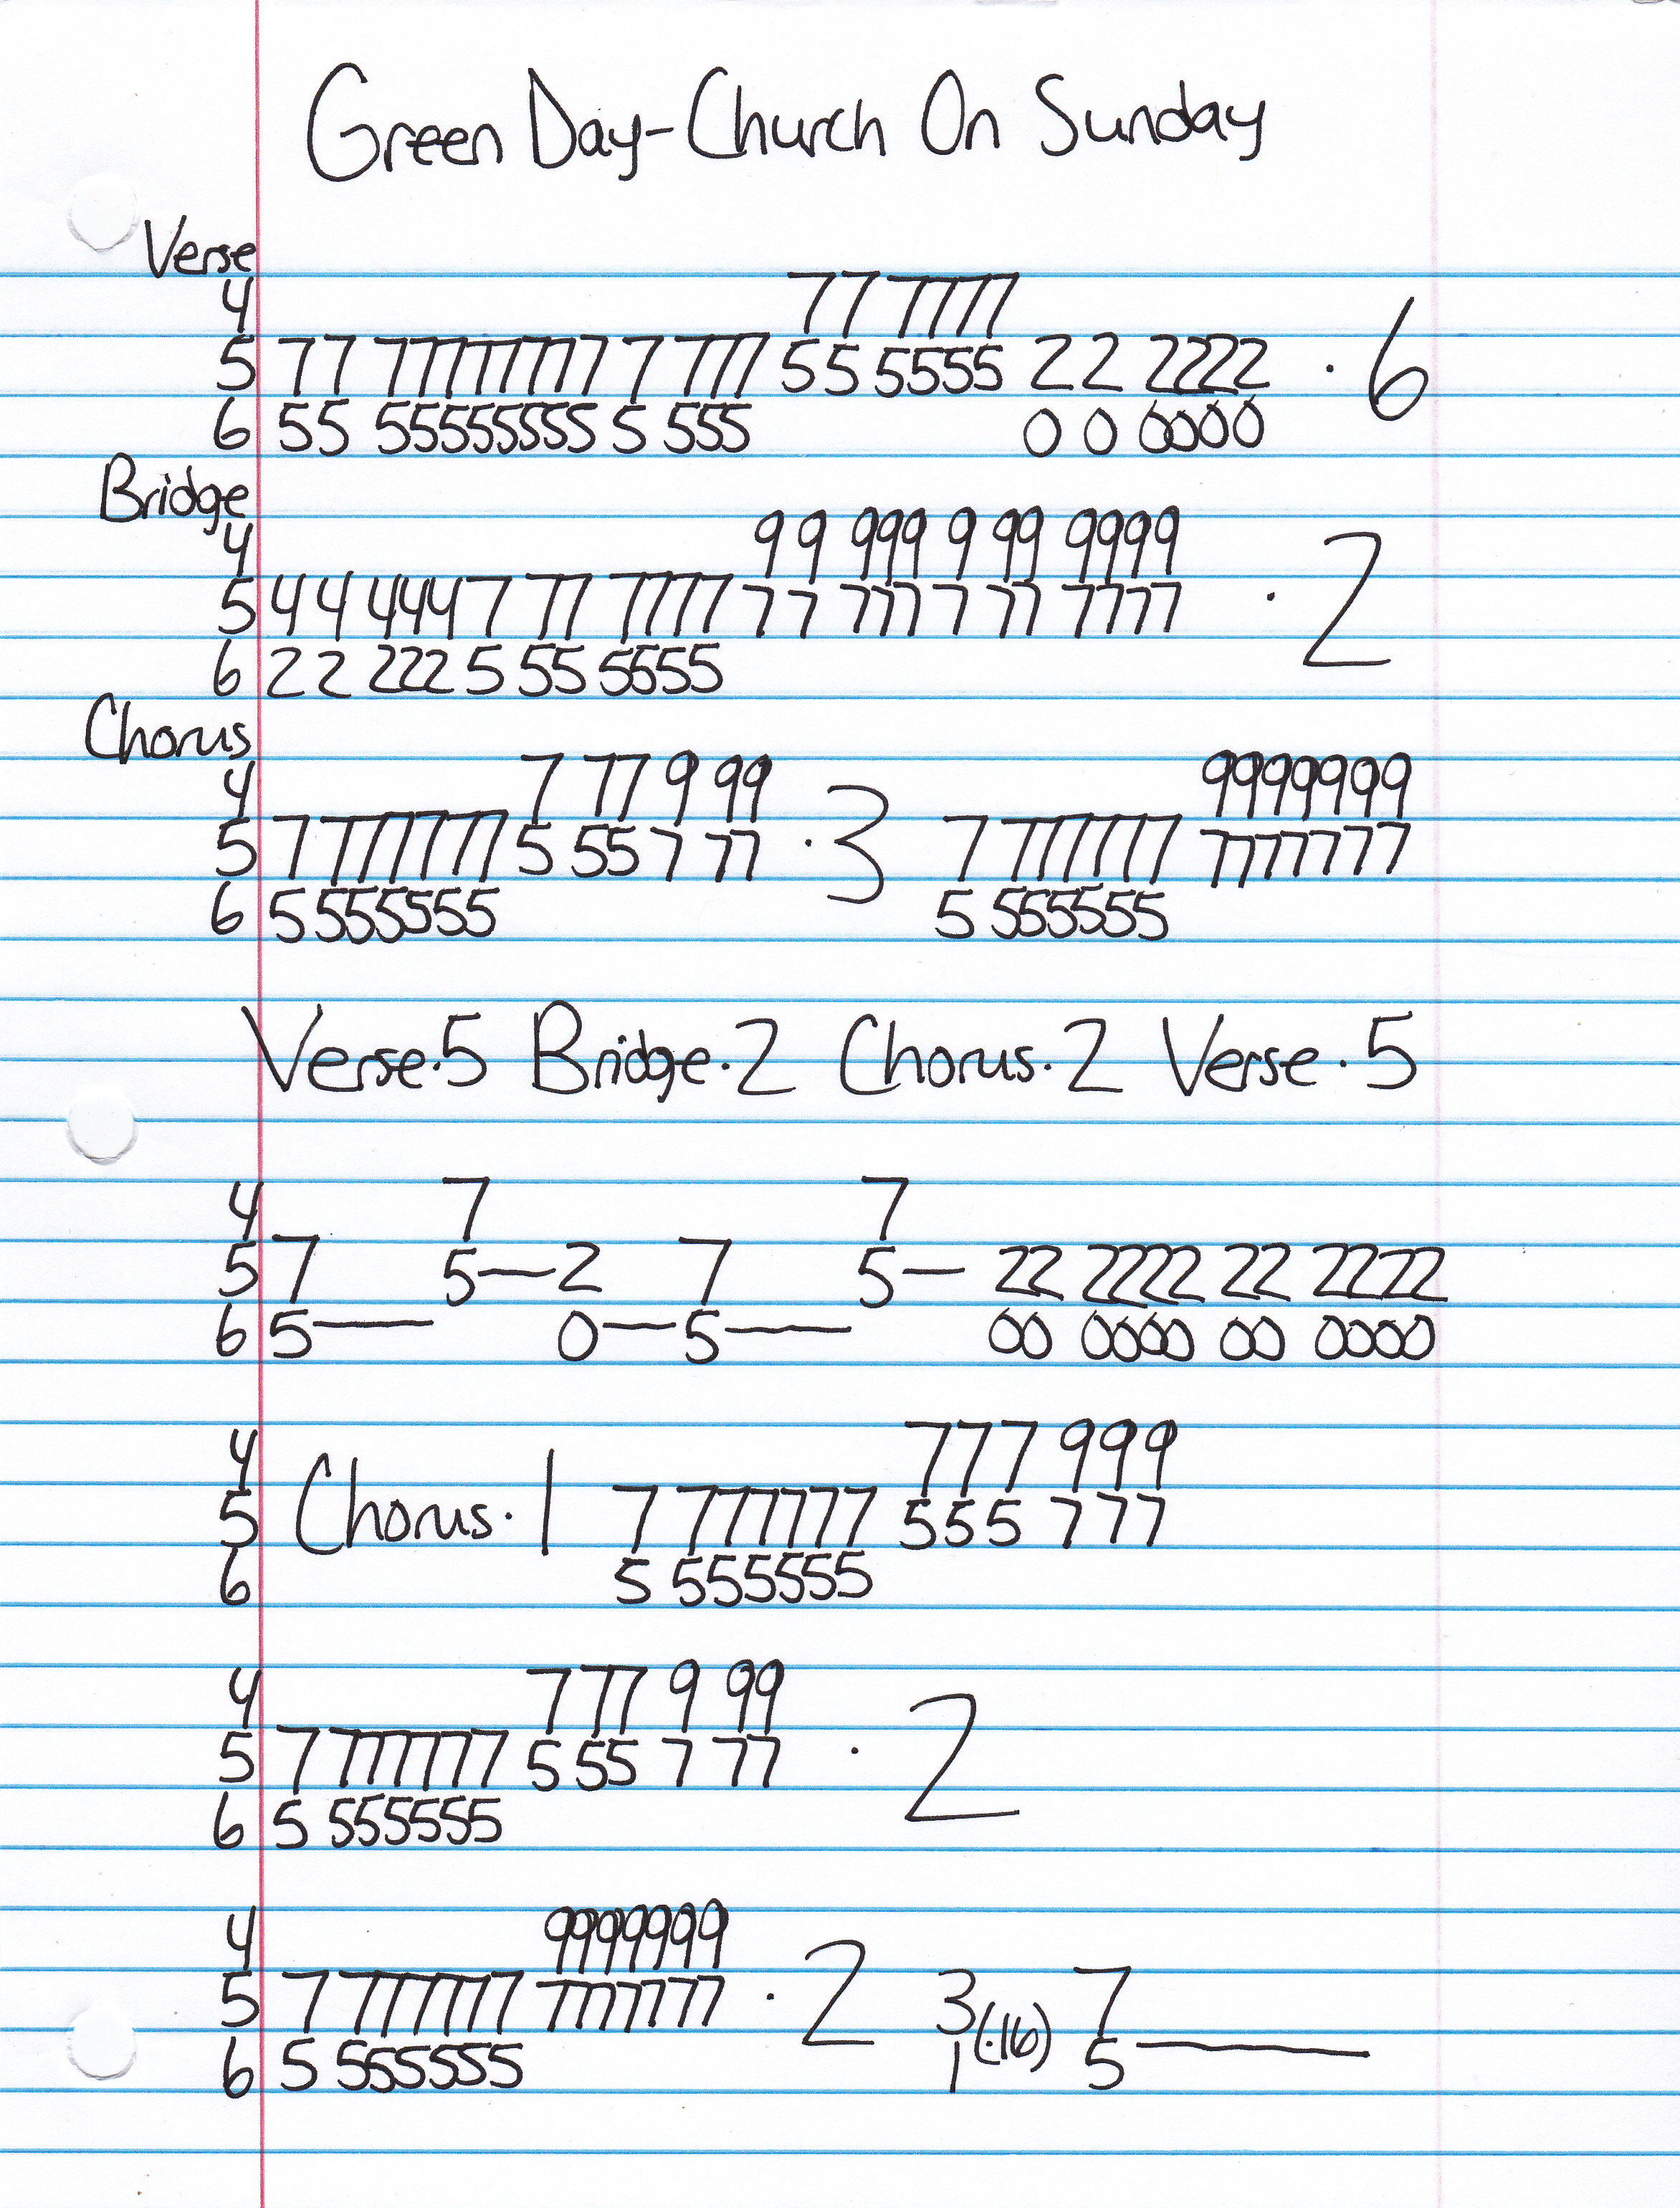 Green Day-Church On Sunday
Verse
4 77 7777
5 77 77777777 7 777 55 5555 22 2222 · 6
6 55 55555555 5 555 00 0000
Bridge
4 99 999 9 99 9999
5 44 4447 77 7777 77 777 7 77 7777 · 2
6 22 222 5 55 5555
Chorus
4 7 77 9 99 9999999
5 7 777777 5 55 7 77 · 3 7 777777 7777777
6 5 555555 5 555555
Verse·5 Bridge·2 Chorus·2 Verse·5
4 7 7
5 7 5—2 7 5— 22 2222 22 2222
6 5— 0—5— 00 0000 00 0000
4 777 999
5 Chorus·1 7 777777 555 777
6 5 555555
4 7 77 9 99
5 7 777777 5 55 7 77 · 2
6 5 555555
4 9999999
5 7 777777 7777777 · 2 3 (·16) 7
6 5 555555 1 5—